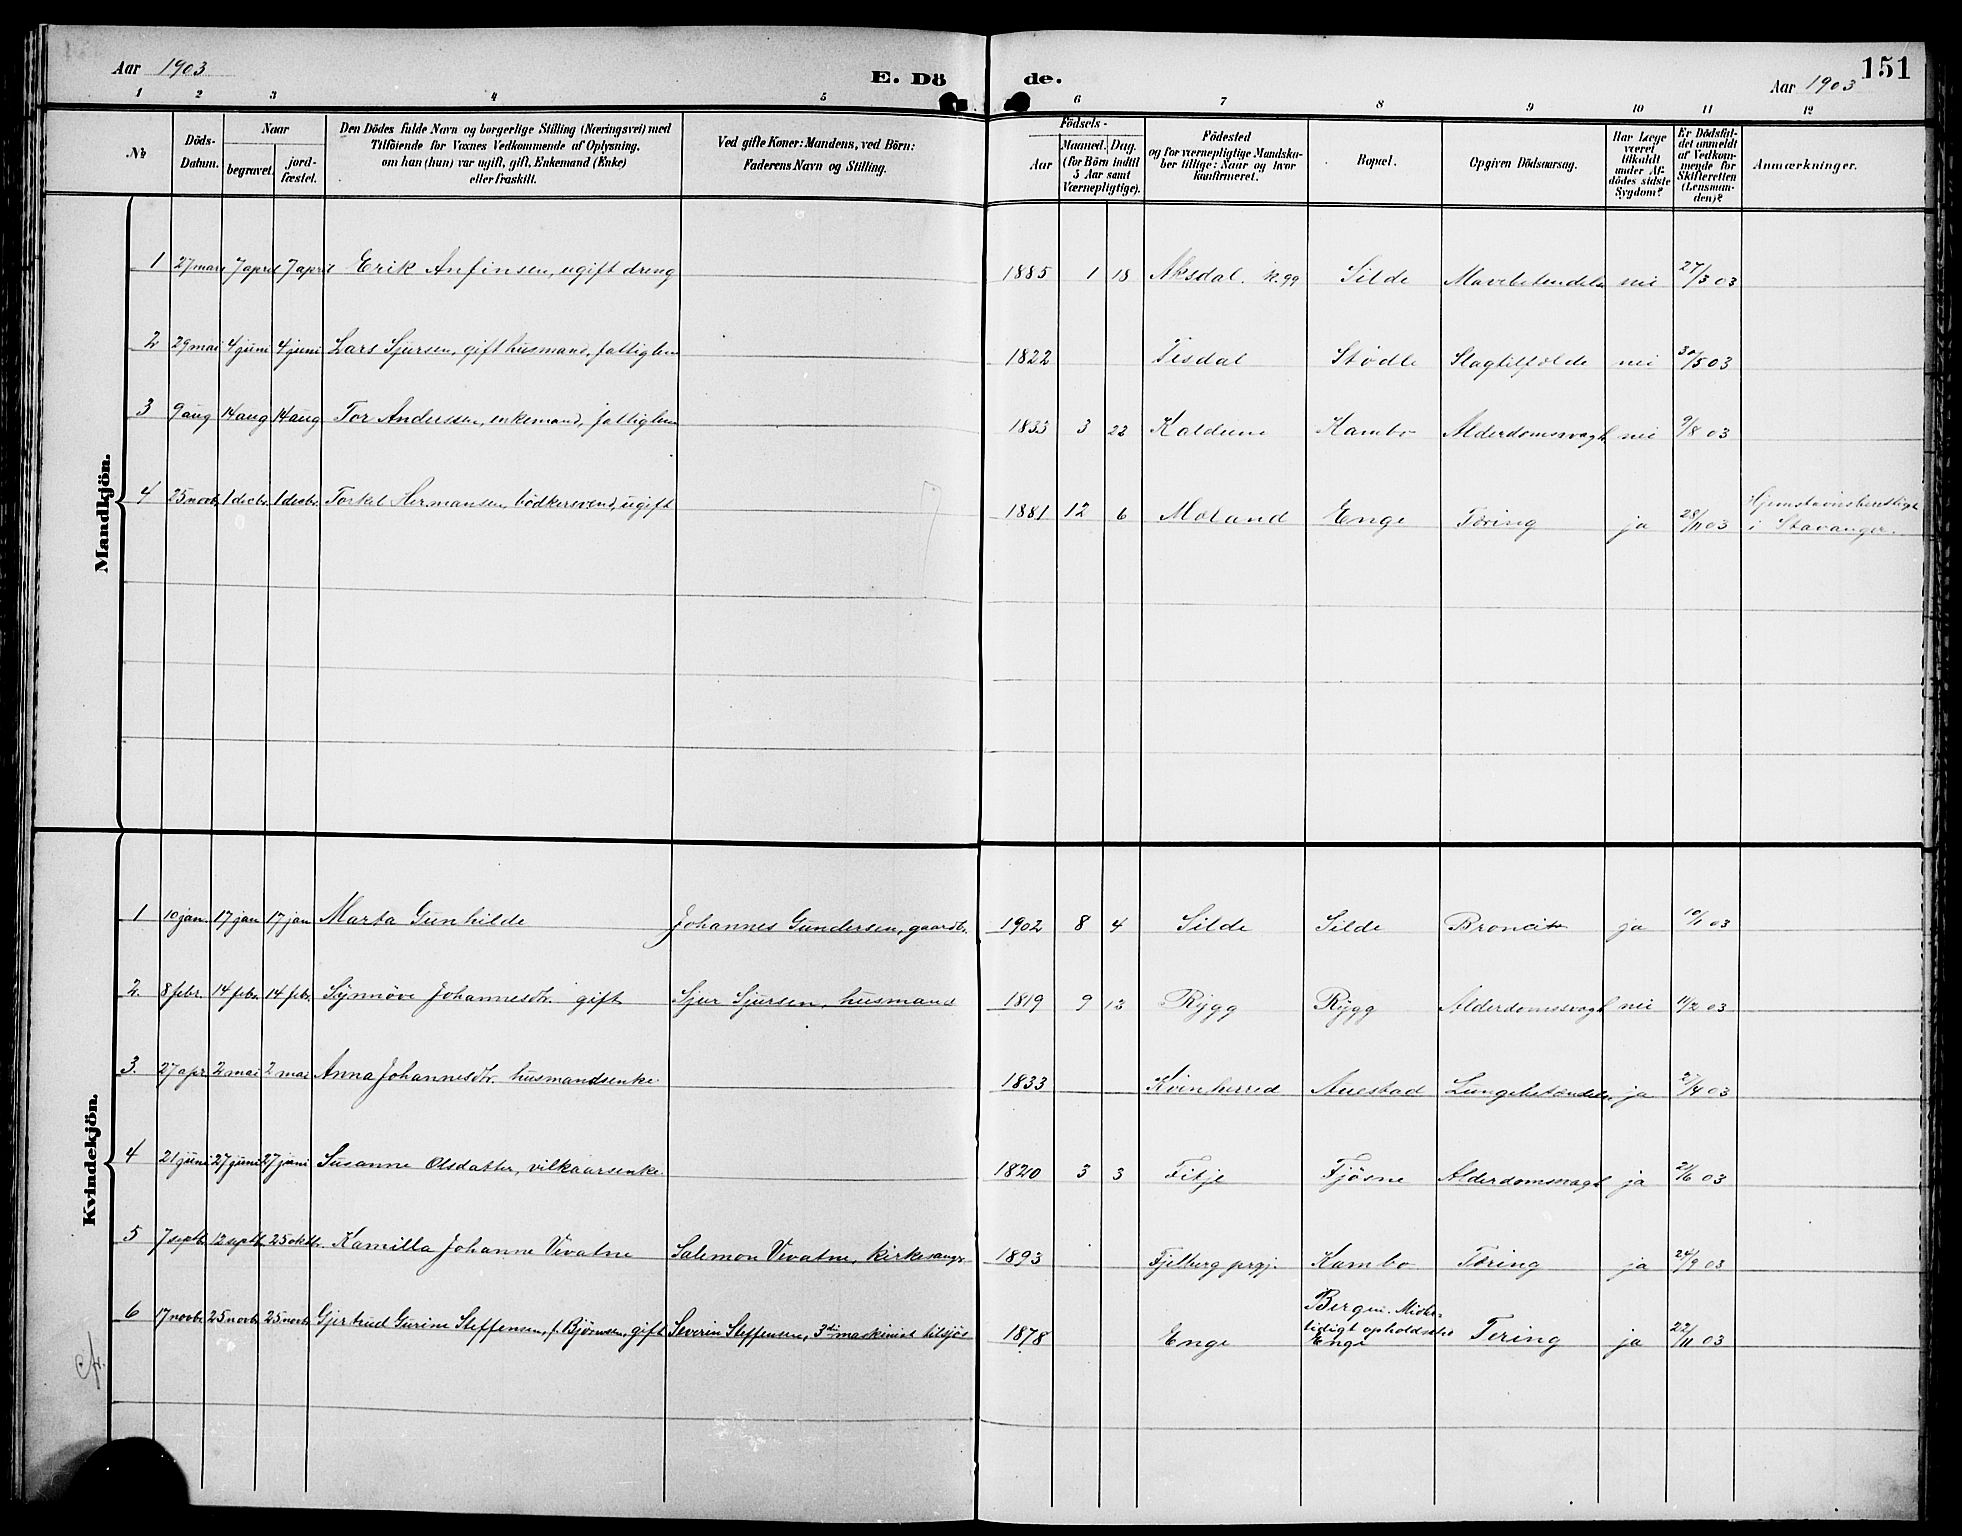 Aar 1903
E. Dö de.
Aar 1903
151
1 2 3 4 5 6 7 8 9 10 11 12
No
Döds-Datum.
Naar
begravet.
jord-fæstet.
Den Dödes fulde Navn og borgerlige Stilling (Næringsvei) med
Tilföiende for Voxnes Vedkommende af Oplysning,
om han (hun) var ugift, gift, Enkemand (Enke)
eller fraskilt.
Ved gifte Koner: Mandens, ved Börn:
Faderens Navn og Stilling.
Födsels-
Aar
Maaned. Dag.
(for Börn indtil
5 Aar samt
Værnepligtige).
Födested
og for værnepligtige Mandska-
ber tillige: Naar og hvor
konfirmeret.
Bopæl.
Opgiven Dödsaarsag.
Har Læge
været
tilkaldt
under Af-
dödes sidste
Sygdom?
Er Dödsfal-
det anmeldt
af Vedkom-
mende for
Skifteretten
(Lensman-
den)?
Anmærkninger.
Mandkjön.
1 27 mars 7 april 7 april Erik Anfinsen, ugift dreng 1885 1 18 Aksdal. k. 99 Silde Mavebetendelse nei 27/3 03
2 29 mai 4 juni 4 juni Lars Sjursen, gift husmand, fattiglem 1822 Stødle Slagtilfælde nei 30/5 03
3 9 aug 14 aug 14 aug Tor Anderssen, enkemand, fattiglem 1833 3 22 Kambo Alderdomssvagh. nei 9/8 03
4 25 novb. 1 decbr. 1 decbr. Torkel Hermansen, bödkersvend, ugift 1881 12 6 Moland Enge Tæring ja 28/11 03 Hjemstavnsberettiget
i Stavanger.
Kvindekjön.
1 10 jan. 17 jan 17 jan Marta Gunhilde Johannes Gundersen, gaardb. 1902 8 4 Silde Silde ja 10/1 03
2. 8 febr. 14 febr. 14 febr. Synnöve Johannesdtr. gift Sjur Sjursen, husmand 1819 9 13 Rygg Rygg Alderdomssvagh nei 11/2 03
3. 27 apr 2 mai 2 mai Anna Johannesdtr. husmandsenke 1833 Kvinherred Austad Lungebetændelse ja 27/4 03
4 21 juni 27 juni 27 juni Susanne Olsdatter, vilkaarsenke 1820 3 3 Fitje Fjösne Alderdomssvagh ja 21/6 03
5 7 septb. 12 septb. 25 oktbr. Kamilla Johanne Vevatne Salemon Vevatne, kirkesanger 1893 Fjelberg prgj. Kambo Tæring ja 24/9 03
6 17 novb. 25 novb. 25 novb. Gjertrud Gurine Steffensen, f. Björnsen, gift Severin Steffensen, 3die maskinist tilsjös 1878 Enge Bergen. Midler-
tidigt opholdssted
Enge Tering ja 22/11 03